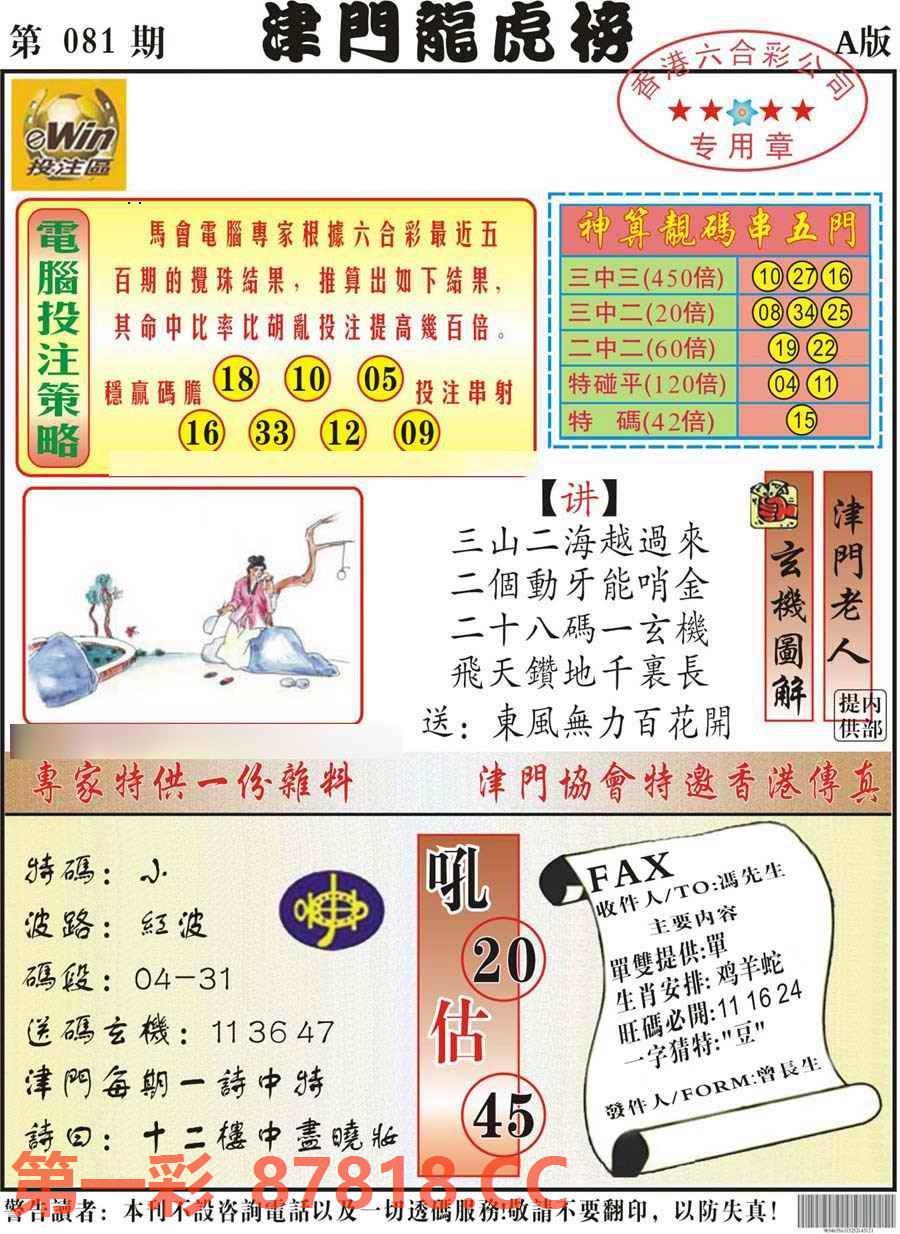 第 081 期
津門龍虎榜
A版
香港六合彩公司
专用章
eWin
投注區
電腦投注策略
馬會電腦專家根據六合彩最近五
百期的攪珠結果，推算出如下結果，
其命中比率比胡亂投注提高幾百倍。
穩贏碼膽 18 10 05 投注串射
16 33 12 09
神算靚碼串五門
三中三(450倍) 10 27 16
三中二(20倍) 08 34 25
二中二(60倍) 19 22
特碰平(120倍) 04 11
特 碼(42倍) 15
【讲】
三山二海越過來
二個動牙能哨金
二十八碼一玄機
飛天鑽地千裏長
送：東風無力百花開
玄機圖解
津門老人
内部提供
專家特供一份雜料
津門協會特邀香港傳真
特碼：小
波路：紅波
碼段：04-31
送碼玄機：11 36 47
津門每期一詩中特
詩曰：十二樓中盡曉妝
吼
20
估
45
FAX
收件人/TO:馮先生
主要内容
單雙提供:單
生肖安排:鸡羊蛇
旺碼必開:11 16 24
一字猜特:"豆"
發件人/FORM:曾長生
第一彩 87818.CC
警告讀者：本刊不設咨詢電話以及一切透碼服務!敬請不要翻印，以防失真!